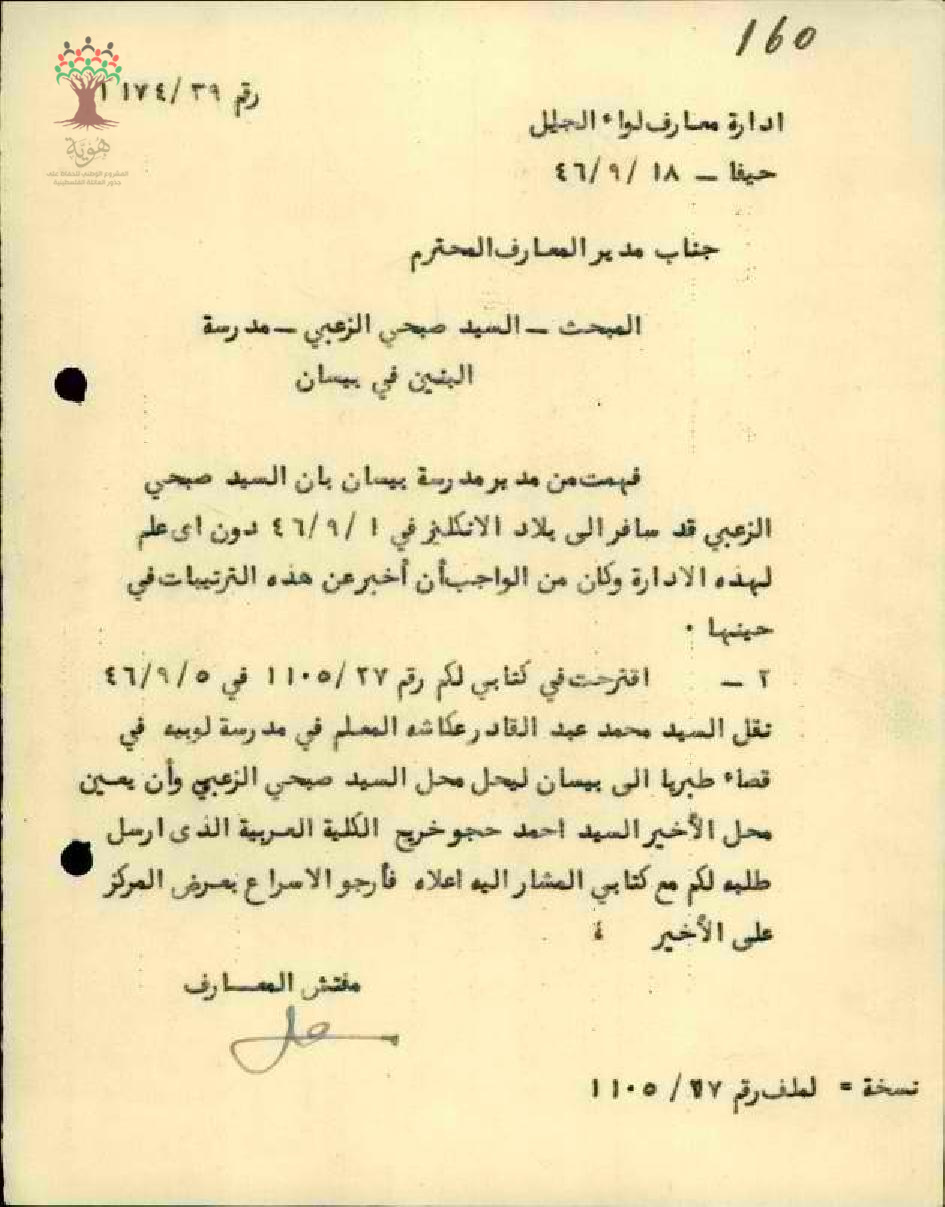 160
رقم ٣٩/ ١١٧٤
ادارة معارف لواء الجليل
حيفا – ١٨ /٤٦/٩
جناب مدير المعارف المحترم
المبحث – السيد صبحي الزعبي – مدرسة
البنين في بيسان
فهمت من مدير مدرسة بيسان بان السيد صبحي
الزعبي قد سافر الى بلاد الانكليز في ١ /٤٦/٩ دون اى علم
لهذه الادارة وكان من الواجب أن أخبر عن هذه الترتيبات في
حينها ٠
٢ – اقترحت في كتابي لكم رقم ٢٧/ ١١٠٥ في ٤٦/٩/٥
نقل السيد محمد عبد القادر عكاشه المعلم في مدرسة لوبيه في
قضاء طبريا الى بيسان ليحل محل السيد صبحي الزعبي وأن يعين
محل الأخير السيد احمد حجو خريج الكلية العربية الذى ارسل
طلبه لكم مع كتابي المشار اليه اعلاه فأرجو الاسراع بعرض المركز
على الأخير ؛
مفتش المعــارف
نسخة = لملف رقم ٢٧/ ١١٠٥
هوية
المشروع الوطني للحفاظ على
جذور العائلة الفلسطينية